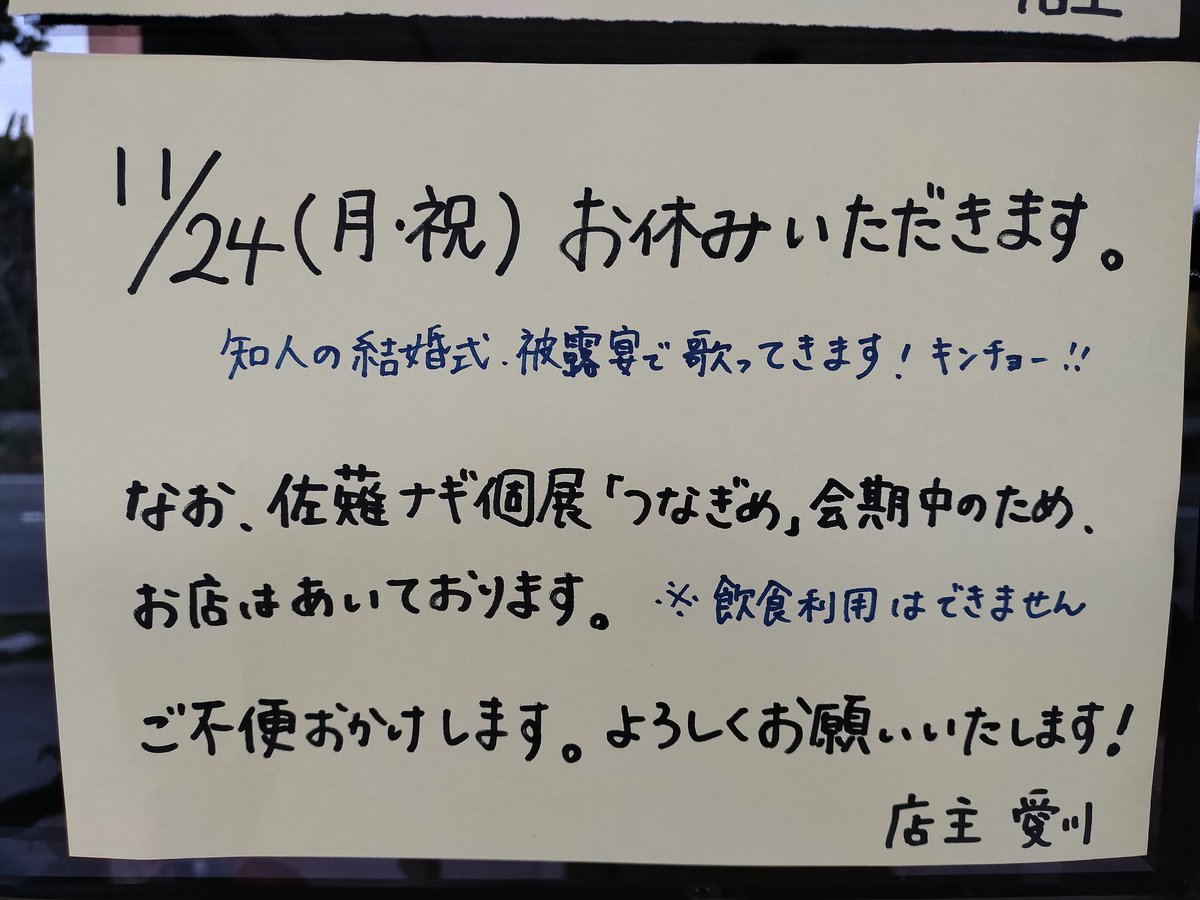 店主
11/24(月・祝)お休みいただきます。
知人の結婚式・被露宴で歌ってきます!キンチョー!!
なお、佐薙ナギ個展「つなぎめ」会期中のため、
お店はあいております。 ※飲食利用はできません
ご不便おかけします。よろしくお願いいたします!
店主 愛川